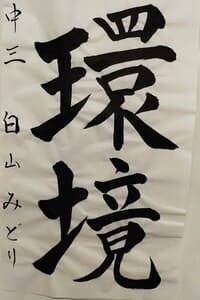 環境
中三 白山みどり